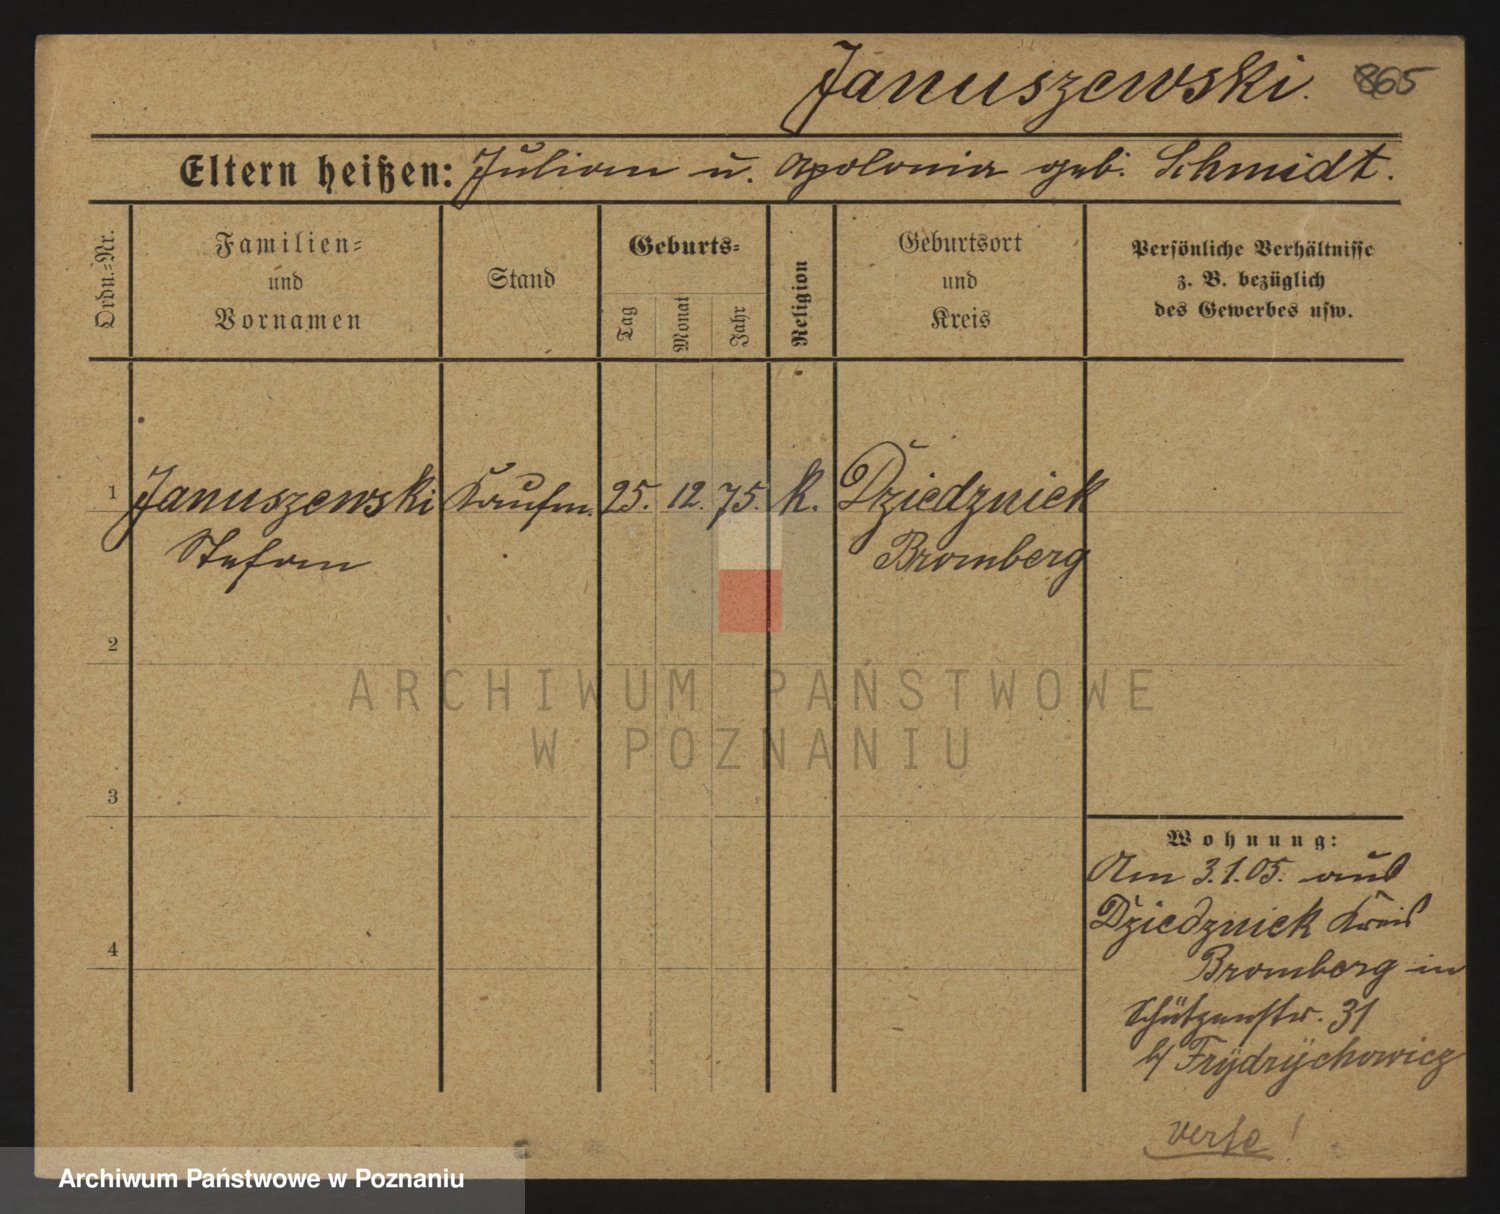 Januszewski. 865
Eltern heißen: Julian u. Apolonia geb. Schmidt.
Ordn.=Nr.
Familien=
und
Vornamen
Stand
Geburts=
Tag
Monat
Jahr
Religion
Geburtsort
und
Kreis
Persönliche Verhältnisse
z. B. bezüglich
des Gewerbes usw.
1 Januszewski Kaufm. 25. 12. 75. k. Dziedznick
Stefan Bromberg
2
3
4
Wohnung:
Am 3.1.05. aus
Dziedznick Kreis
Bromberg in
Schützenstr. 31
b/ Frÿdrÿchowicz
verse!
ARCHIWUM PAŃSTWOWE
W POZNANIU
Archiwum Państwowe w Poznaniu